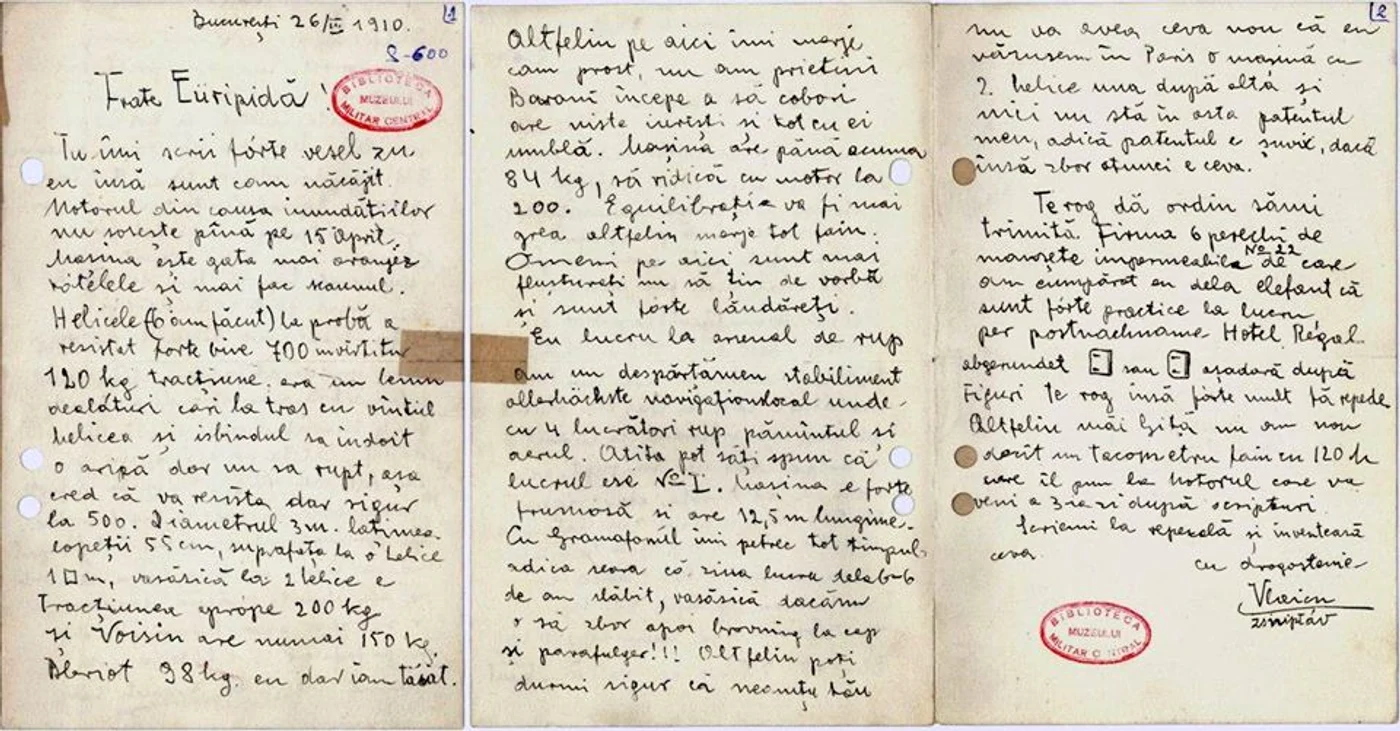 București 26/III 1910.
1
S-600
Frate Euripidă!
BIBLIOTECA
MUZEULUI
MILITAR CENTRAL
Tu îmi scrii fórte vesel zu
eu însă sunt cam năcăjit.
Motorul din causa inundațiilor
nu sosește pînă pe 15 April.
Mașina este gata mai aranjez
rótelele și mai fac scaunul.
Helicele (6 am făcut) la probă a
resistat forte bine 700 invîrtitur
120 kg tracțiune. era un lemn
dealături cari la tras cu vîntul
helicea și isbindul sa îndoit
o aripă dar nu sa rupt, așa
cred că va resista dar sigur
la 500. Diametrul 3m. latimea
copeții 55cm, suprafața la o helice
1□m, vasăsică la 2 helice e
Tracțiunea aprope 200 kg
și Voisin are numai 150 kg.
Bleriot 98 kg. eu dar iam tăsăt.
Altfeliu pe aici îmi merje
cam prost, nu am prietini
Baranî începe a să coborî
are niste and tot cu ei
umblă. Mașina are până acuma
84 kg, să ridică cu motor la
200. Equilibrația va fi mai
grea altfeliu merje tot fain.
Omeni pe aici sunt mai
flustureti nu să țin de vorbă
și sunt fórte lăudăreți.
Eu lucru la arsenal de rup
am un despărțămen stabiliment
allerhöchste navigationslocal unde
cu 4 lucrători rup pămîntul si
aerul. Atîta pot săți spun că
lucrul ese No I. Mașina e forte
frumósă si are 12,5 m lungime.
Cu Gramafonŭl îmi petrec tot timpul
adica seara că ziua lucru dela 6-6
de am slăbit, vasăsică dacănu
o să zbor apoi brovning la cap
și parafulger!!! Altfeliu poți
durmi sigur că neamțu tău
2
nu va avea ceva nou că eu
văzusem în Paris o mașină cu
2. helice una după altă și
nici nu stă în asta patentul
meu, adică patentul e șuvix, dacă
însă zbor atunci e ceva.
Te rog dă ordin sămi
trimită Firma 6 perechi de
manșete impermeabile No 22 de care
am cumpărat eu dela elefant că
sunt fórte practice la lucru
per postnachname Hotel Regal
abgerundet sau așadară după
Figuri Te rog însă fórte mult fă repede
Altfeliu măi Ghiță nu am nou
decît un tacometru fain cu 120 h
care îl pun la Motorul care va
veni a 3-a zi după scripturi.
Scriemi la repezală și inventează
ceva.
cu dragostanie
Vlaicu
zmiptáv
BIBLIOTECA
MUZEULUI
MILITAR CENTRAL